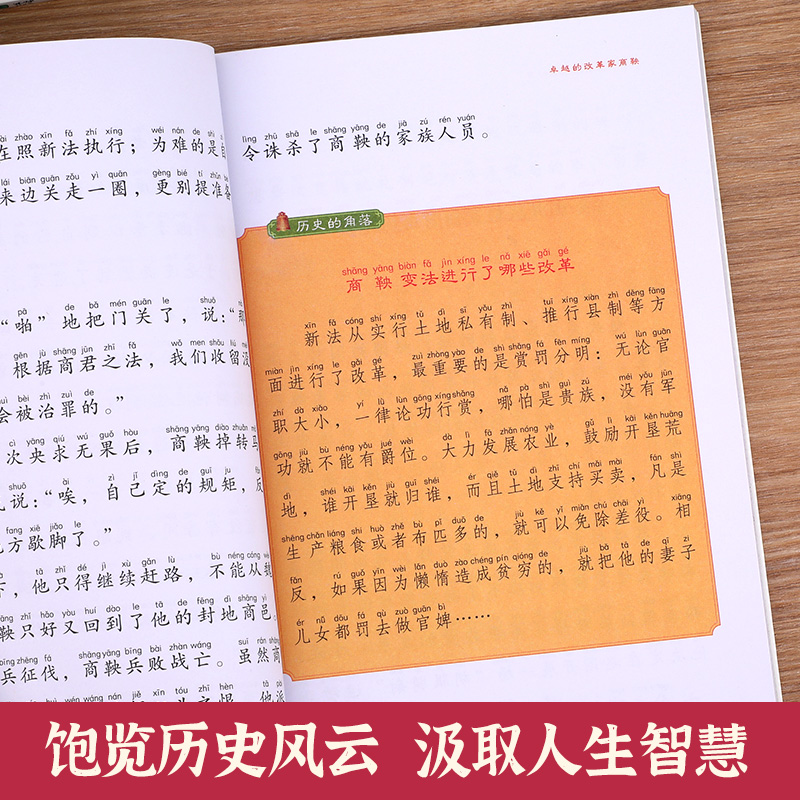 在照新法执行；为难的是
来边关走一圈，更别提准备
“啪”地把门关了，说：“那
根据商君之法，我们收留没
会被治罪的。”
次央求无果后，商鞅掉转马
说：“唉，自己定的规矩，反
方歇脚了。”
他只得继续赶路，不能从魏
鞅只好又回到了他的封地商邑。
兵征伐，商鞅兵败战亡。虽然商
卓越的改革家商鞅
lìng zhū shā le shāng yāng de jiā zú rén yuán
令诛杀了商鞅的家族人员。
历史的角落
shāng yāng biàn fǎ jìn xíng le nǎ xiē gǎi gé
商鞅变法进行了哪些改革
xīn fǎ cóng shí xíng tǔ dì sī yǒu zhì tuī xíng xiàn zhì děng fāng
新法从实行土地私有制、推行县制等方
miàn jìn xíng le gǎi gé zuì zhòng yào de shì shǎng fá fēn míng wú lùn guān
面进行了改革，最重要的是赏罚分明：无论官
zhí dà xiǎo yí lǜ lùn gōng xíng shǎng nǎ pà shì guì zú méi yǒu jūn
职大小，一律论功行赏，哪怕是贵族，没有军
gōng jiù bù néng yǒu jué wèi dà lì fā zhǎn nóng yè gǔ lì kāi kěn huāng
功就不能有爵位。大力发展农业，鼓励开垦荒
dì shéi kāi kěn jiù guī shéi ér qiě tǔ dì zhī chí mǎi mài fán shì
地，谁开垦就归谁，而且土地支持买卖，凡是
shēng chǎn liáng shi huò zhě bù pǐ duō de jiù kě yǐ miǎn chú chāi yì xiāng
生产粮食或者布匹多的，就可以免除差役。相
fǎn rú guǒ yīn wèi lǎn duò zào chéng pín qióng de jiù bǎ tā de qī zǐ
反，如果因为懒惰造成贫穷的，就把他的妻子
ér nǚ dōu fá qù zuò guān bì
儿女都罚去做官婢……
饱览历史风云 汲取人生智慧